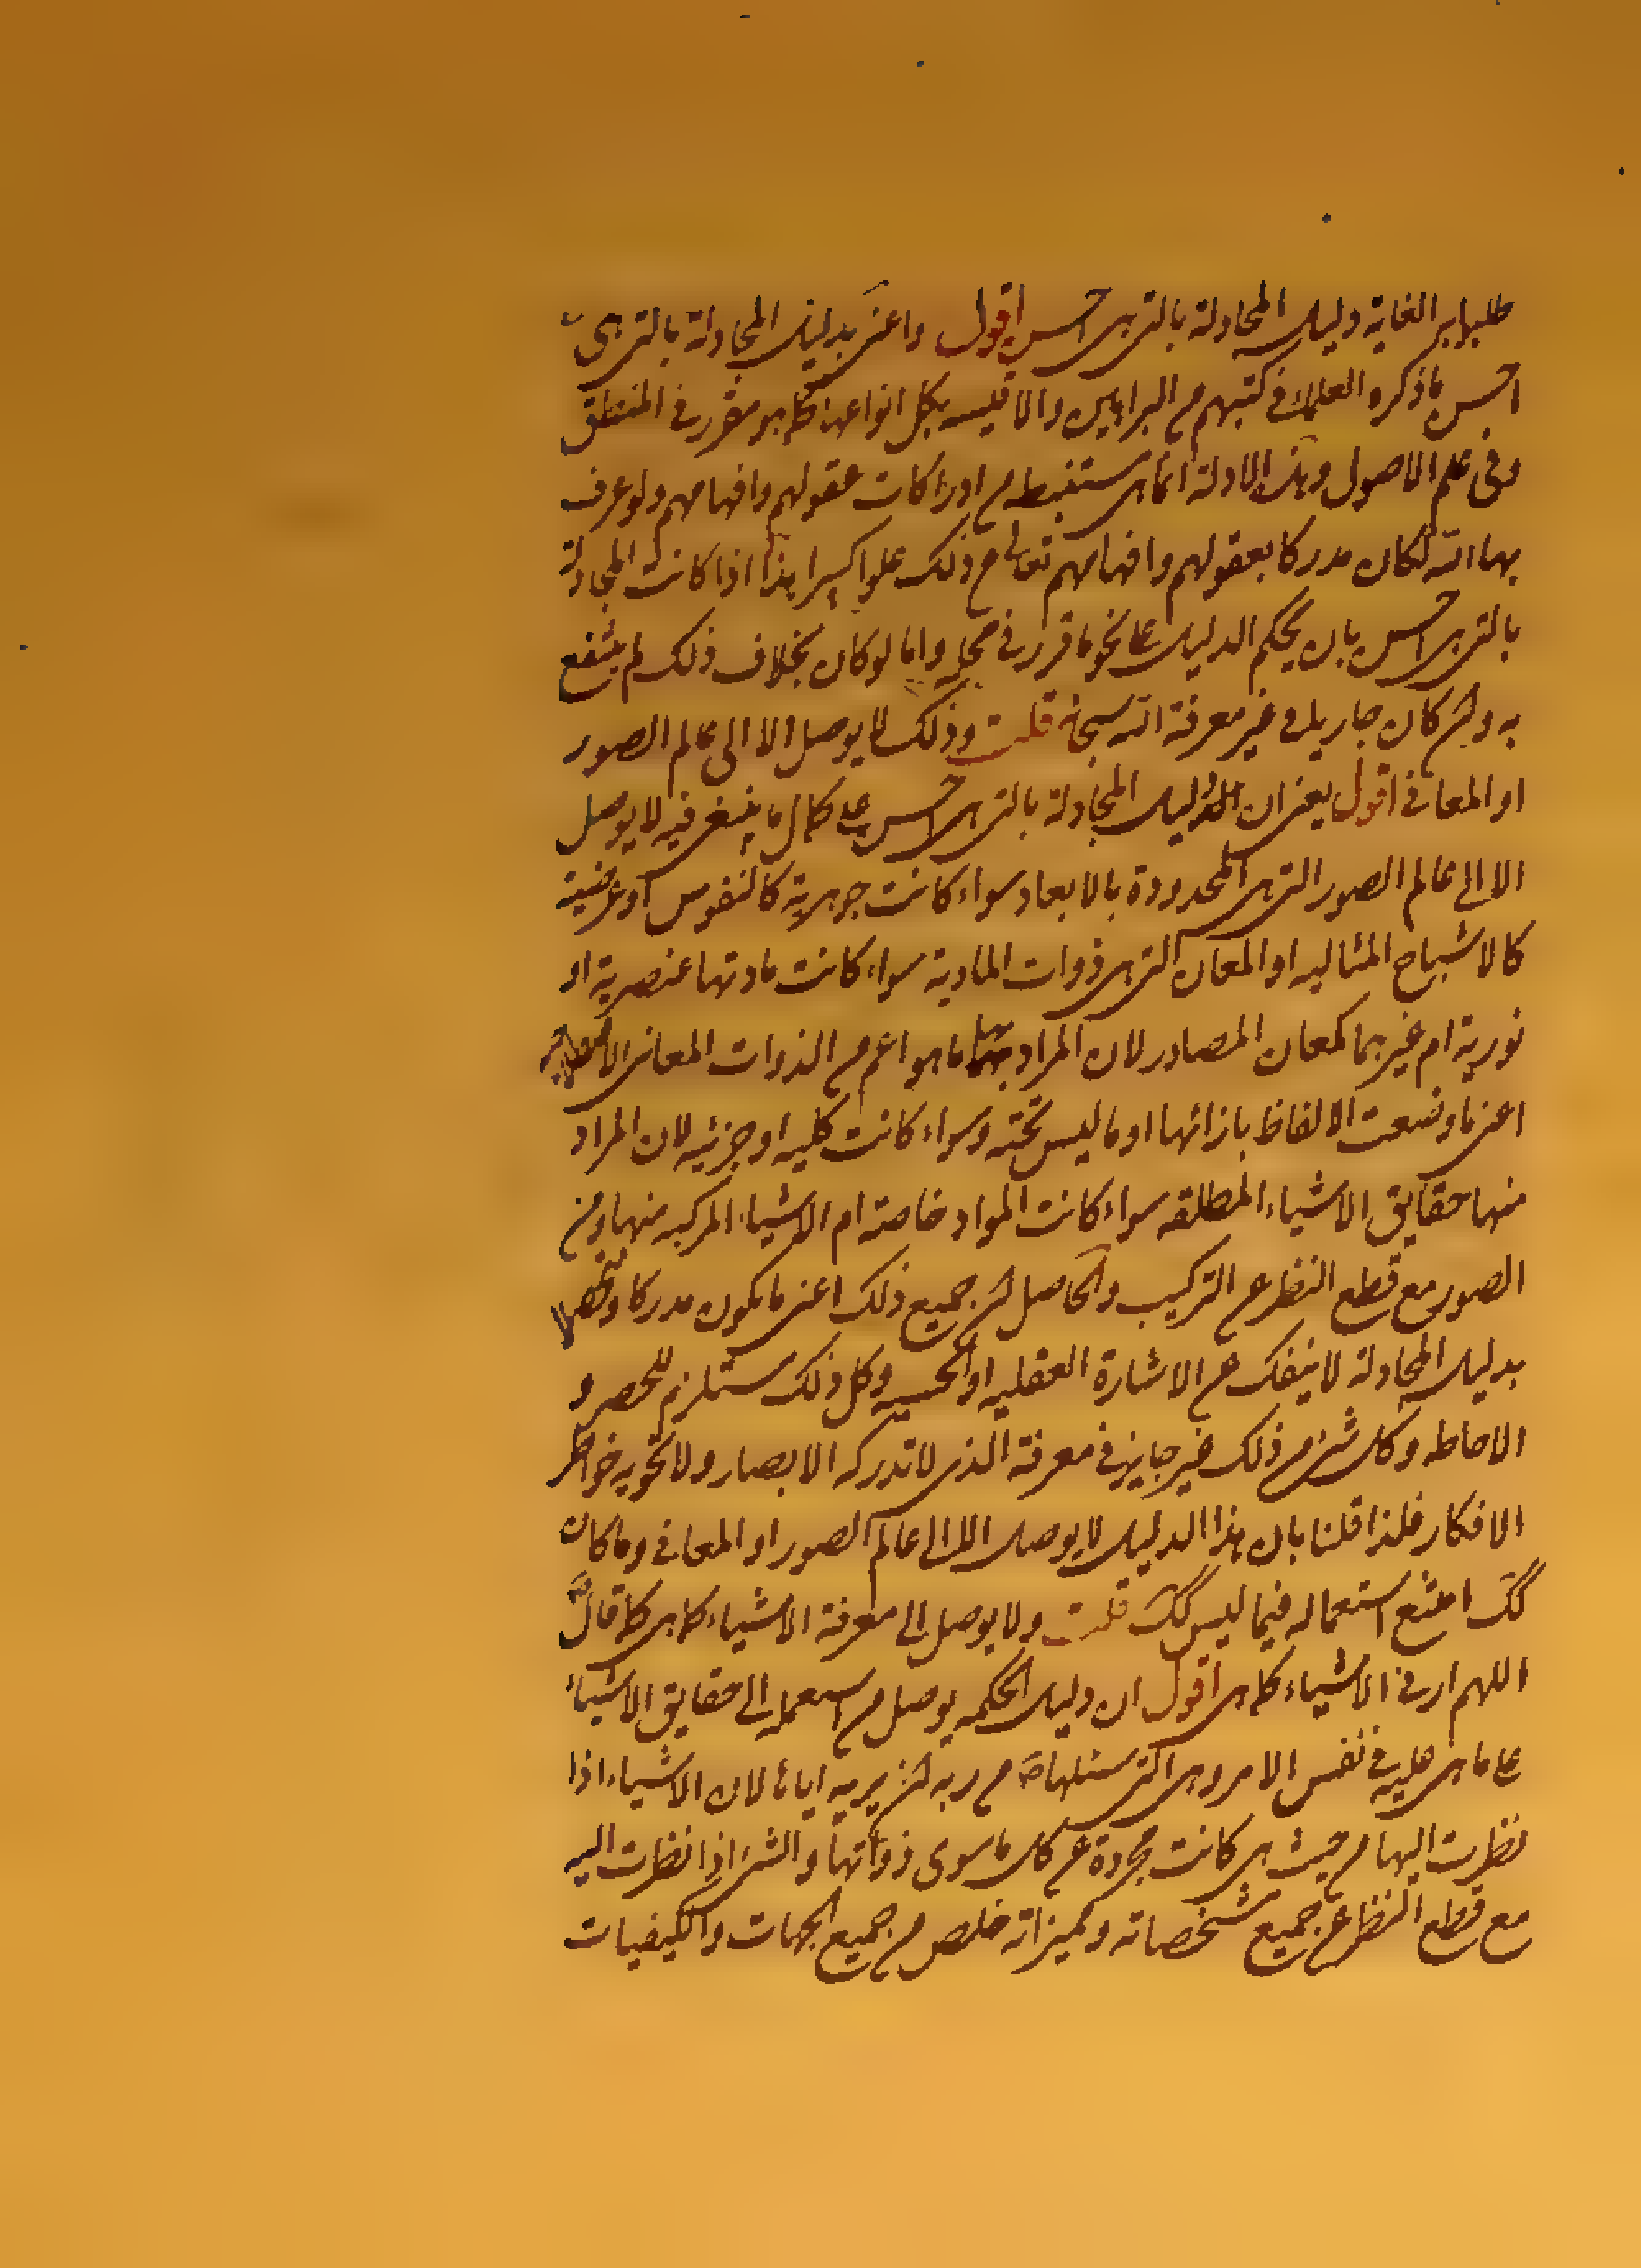 طلبوا بر الغاية دليل المجادلة بالتى هى احسن اقول واعنى بدليل المجادلة بالتى هى
احسن ما ذكره العلماء فى كتبهم من البراهين والاقيسه بكل انواعها كما هو مقرر فى المنطق
وفى علم الاصول وهذه الادلة انما هى مستنبطه من ادراكات عقولهم وافهامهم ولو عرف
بها الله لكان مدركا بعقولهم وافهامهم تعالى عن ذلك علوا كبيرا هذا اذا كانت المجادلة
بالتى هى احسن بان يحكم الدليل على نحو ما قرر فى محله واما لو كان بخلاف ذلك لم ينتفع
به وان كان جاريا فى غير معرفة الله سبحانه قلت وذلك لا يوصل الا الى عالم الصور
او المعانى اقول يعنى ان الدليل المجادلة بالتى هى احسن على كمال ما ينبغى فيه لا يوصل
الا الى عالم الصور التى هى المحدودة بالابعاد سواء كانت جوهرية كالنفوس او عرضية
كالاشباح المثاليه او المعان التى هى ذوات المادية سواء كانت مادتها عنصرية او
نورية ام غيرهما كمعان المصادر لان المراد بها ما هو اعم من الذوات المعانى
اعنى ما وضعت الالفاظ بازائها او ما ليس تحته وسواء كانت كليه او جزئيه لان المراد
منها حقايق الاشياء المطلقه سواء كانت المواد خاصة ام الاشياء المركبه منها ومن
الصور مع قطع النظر عن التركيب والحاصل ان جميع ذلك اعنى ما يكون مدركا
بدليل المجادلة لا ينفك عن الاشارة العقليه او الحسيه وكل ذلك مستلزم للحصر و
الاحاطه وكل شئ من ذلك غير جايز فى معرفة الذى لا تدركه الابصار ولا تحويه خواطر
الافكار فلذا قلنا بان هذا الدليل لا يوصل الا الى عالم الصور او المعانى وما كان
كك امتنع استعماله فيما ليس كك قلت ولا يوصل الى معرفة الاشياء كما هى كما قال
اللهم ارنى الاشياء كما هى اقول ان دليل الحكمه يوصل من استعمله الى حقايق الاشياء
على ما هى عليه فى نفس الامر وهى التى سئلها من ربه ان يريه اياها لان الاشياء اذا
نظرت اليها من حيث هى كانت مجردة عن كل ما سوى ذواتها والشئ اذا نظرت اليه
مع قطع النظر عن جميع مشخصاته ومميزاته خلص من جميع الجهات والكيفيات